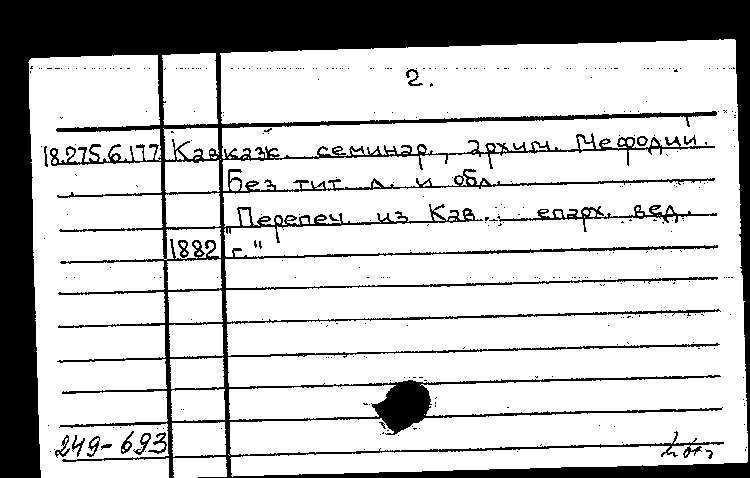 2.
18.275.6.177 Кавказк. семинар., архим. Мефодий.
Без тит л. и обл.
"Перепеч. из Кав. епарх. вед.
1882 г."
249-693